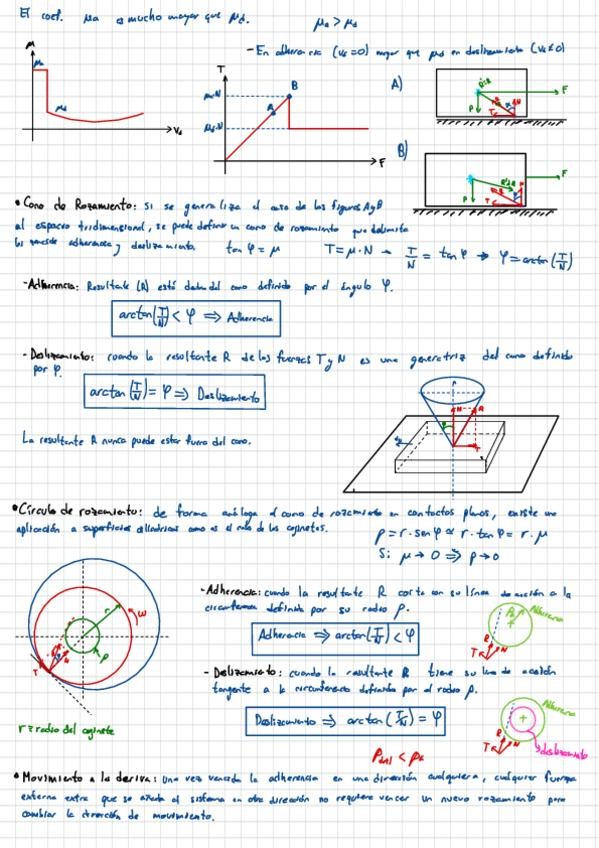 El coef. μa es mucho mayor que μd. μa > μd
- En adherencia (Vd=0) mayor que μd en deslizamiento (Vd≠0)
μ
μa
μd
Vd
T
μa·N
μd·N
A
B
F
A)
F
P
R
T
N
B)
F
P
R
T
N
• Cono de Rozamiento: si se generaliza el caso de las figuras A y B
al espacio tridimensional, se puede definir un cono de rozamiento que delimita
adherencia y deslizamiento. tan φ = μ T = μ·N → T/N = tan φ → φ = arctan(T/N)
- Adherencia: Resultante (R) está dentro del cono definido por el ángulo φ.
arctan(T/N) < φ ⟹ Adherencia
- Deslizamiento: cuando la resultante R de las fuerzas T y N es una generatriz del cono definido
por φ.
arctan(T/N) = φ ⟹ Deslizamiento
La resultante R nunca puede estar fuera del cono.
N
R
T
• Círculo de rozamiento: de forma análoga al cono de rozamiento en contactos planos, existe una
aplicación a superficies cilíndricas como es el caso de los cojinetes.
ρ = r·sen φ ≃ r·tan φ = r·μ
Si μ → 0 ⟹ ρ → 0
r
ω
ρ
T
N
r = radio del cojinete
- Adherencia: cuando la resultante R corta con su línea de acción a la
circunferencia definida por su radio ρ.
Adherencia ⟹ arctan(T/N) < φ
Adherencia
R
T
N
- Deslizamiento: cuando la resultante R tiene su línea de acción
tangente a la circunferencia definida por el radio ρ.
Deslizamiento ⟹ arctan(T/N) = φ
Adherencia
R
T
N
deslizamiento
• Movimiento a la deriva: Una vez vencida la adherencia en una dirección cualquiera, cualquier fuerza
externa extra que se añada al sistema en otra dirección no requiere vencer un nuevo rozamiento para
cambiar la dirección de movimiento.